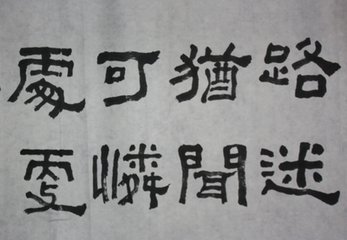 路迷
猶聞
可憐
處處